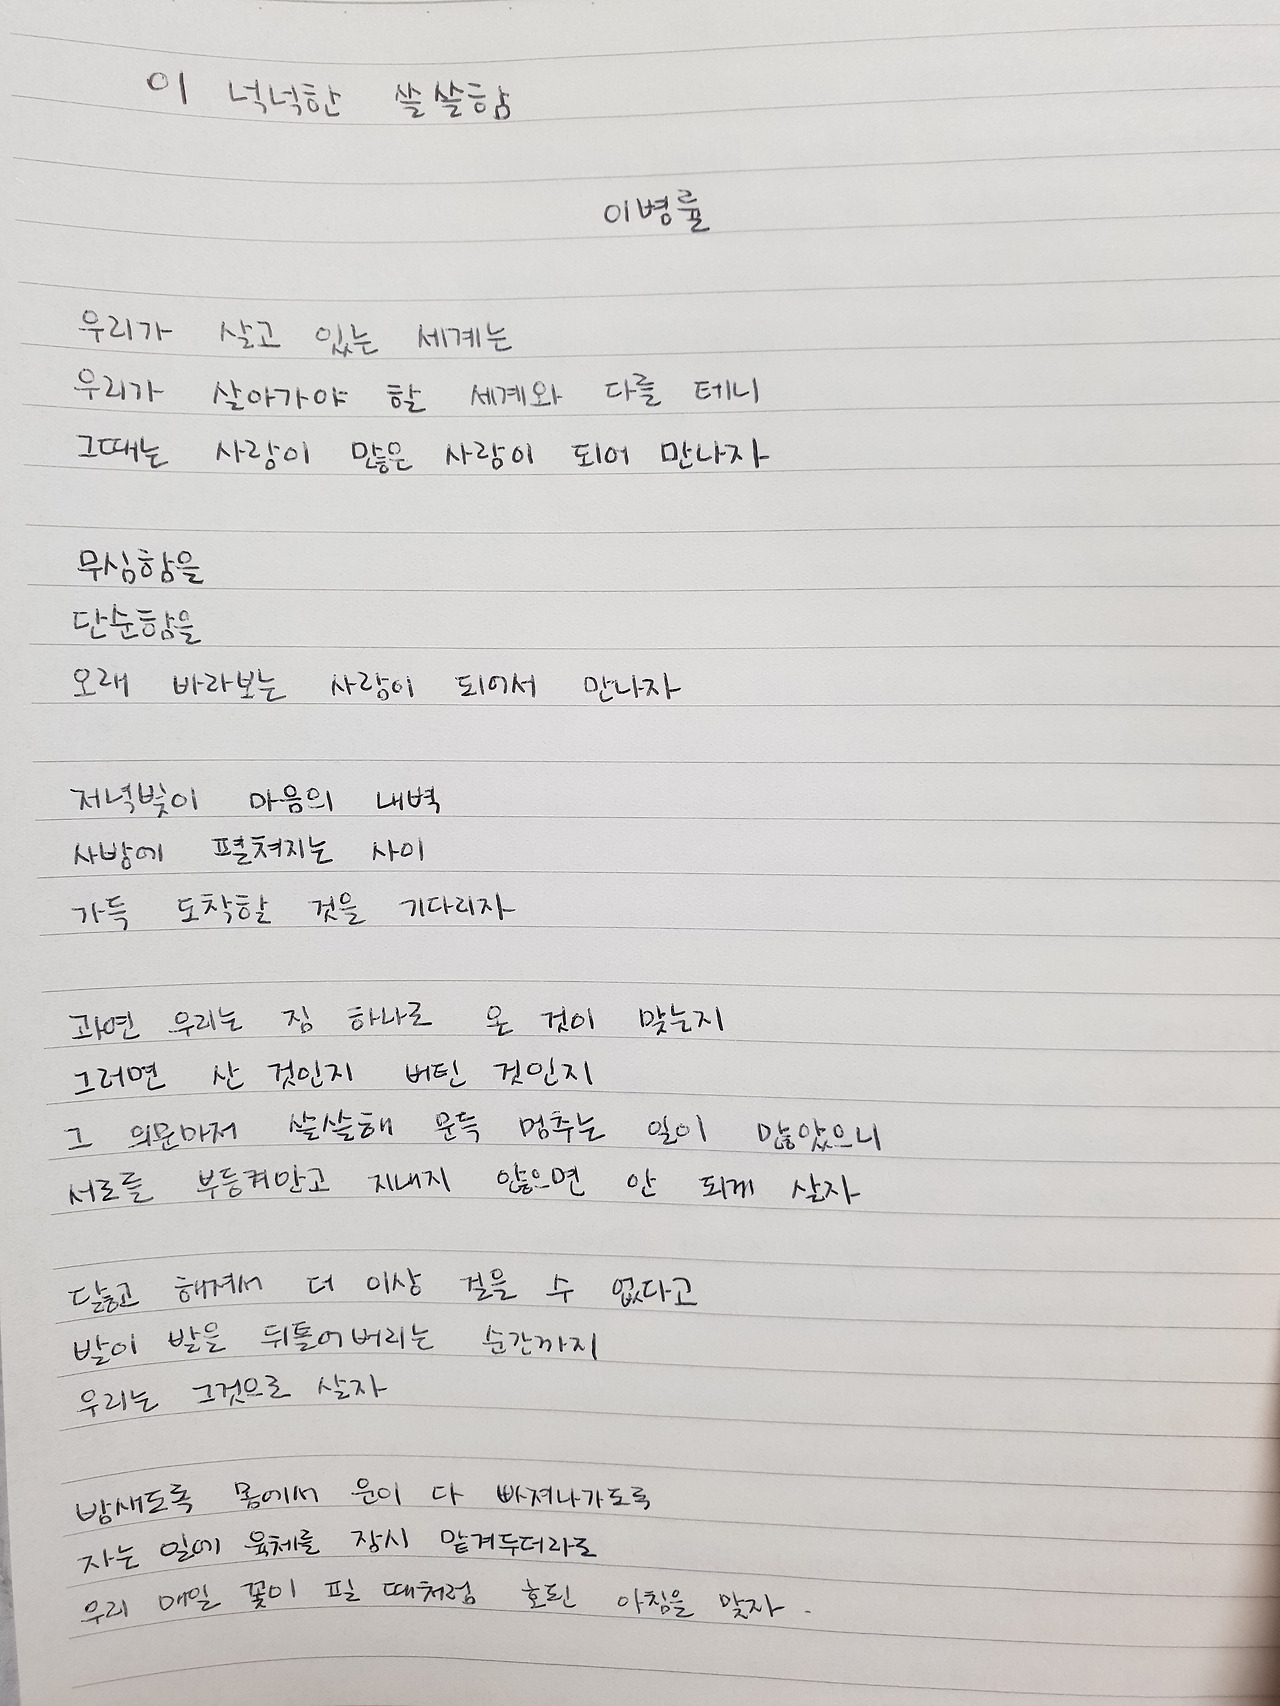 이 넉넉한 쓸쓸함
이병률
우리가 살고 있는 세계는
우리가 살아가야 할 세계와 다를 테니
그때는 사랑이 많은 사람이 되어 만나자
무심함을
단순함을
오래 바라보는 사람이 되어서 만나자
저녁빛이 마음의 내벽
사방에 펼쳐지는 사이
가득 도착할 것을 기다리자
과연 우리는 짐 하나로 온 것이 맞는지
그러면 산 것인지 버틴 것인지
그 의문마저 쓸쓸해 문득 멈추는 일이 많았으니
서로를 부둥켜안고 지내지 않으면 안 되게 살자
닳고 해져서 더 이상 걸을 수 없다고
발이 발을 뒤틀어버리는 순간까지
우리는 그것으로 살자
밤새도록 몸에서 운이 다 빠져나가도록
자는 일에 육체를 잠시 맡겨두더라도
우리 매일 꽃이 필 때처럼 호된 아침을 맞자.